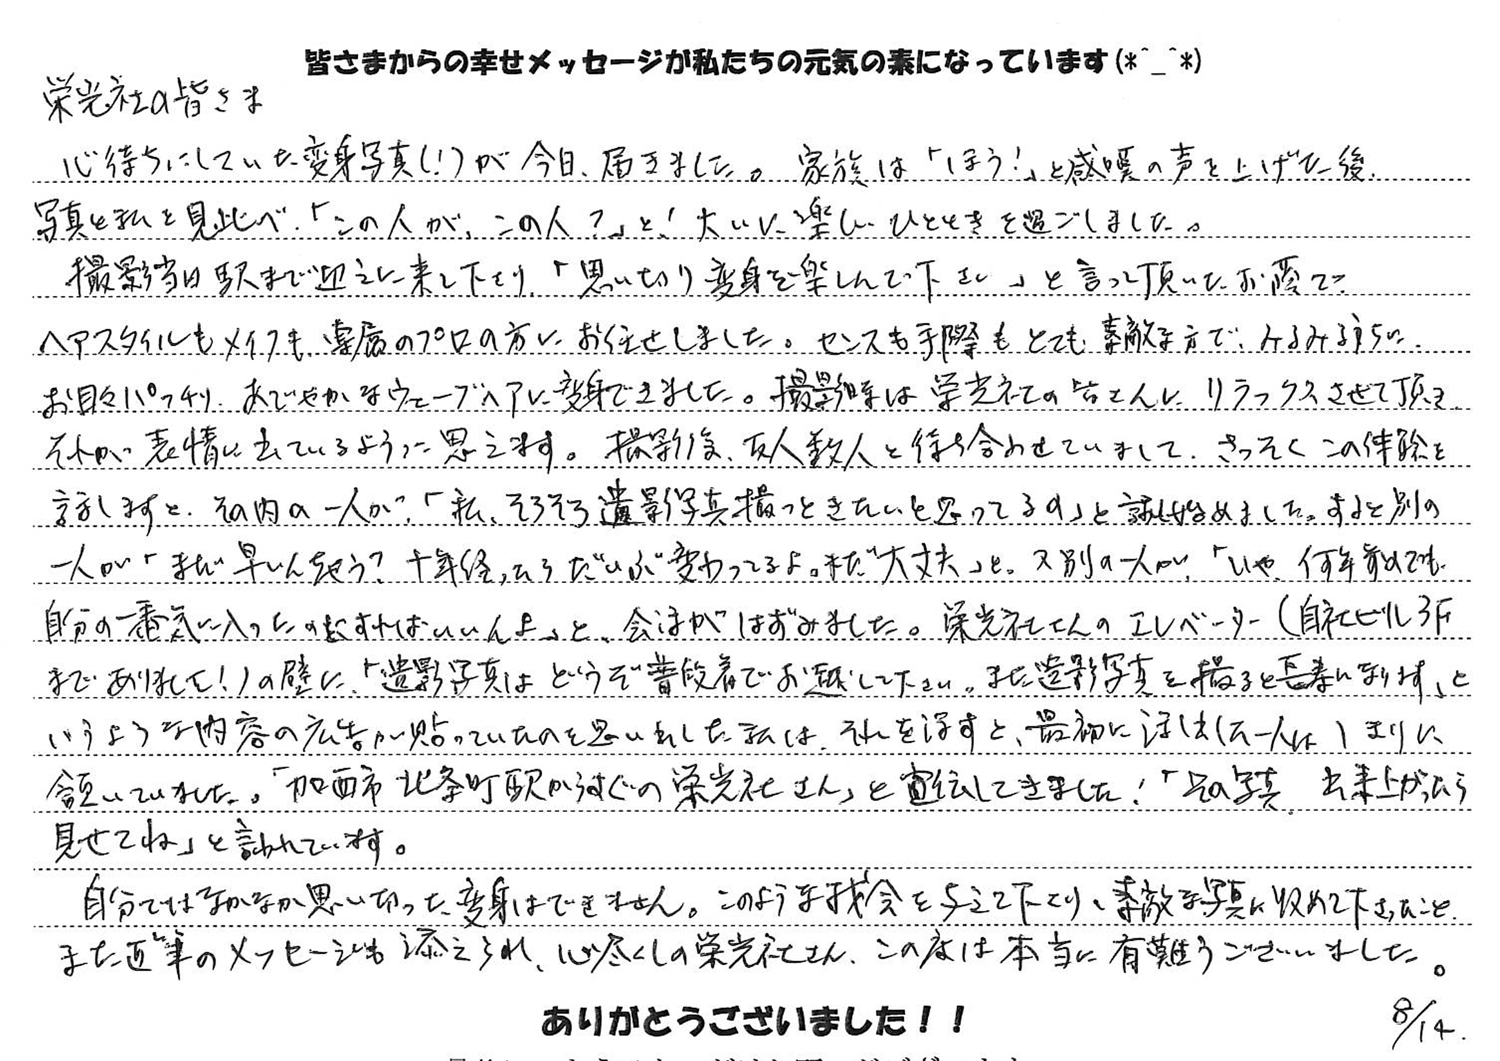 皆さまからの幸せメッセージが私たちの元気の素になっています(*^_^*)
栄光社の皆さま
心待ちにしていた変身写真(!)が今日、届きました。家族は「ほう!」と感嘆の声を上げた後、
写真と私を見比べ、「この人が、この人?」と!大いに楽しいひとときを過ごしました。
撮影当日駅まで迎えに来て下さり、「思い切り変身を楽しんで下さい」と言って頂いたお蔭で
ヘアスタイルもメイクも、専属のプロの方にお任せしました。センスも手際もとても素敵な方で、みるみるうちに、
お目々パッチリ、あでやかなウェーブヘアに変身できました。撮影時は栄光社の皆さんに リラックスさせて頂き、
それが表情に出ているように思えます。撮影後、友人数人と待ち合わせていまして、さっそくこの体験を
話しますと、その内の一人が、「私、そろそろ遺影写真撮っときたいと思ってるの」と話し始めました。すると別の
一人が「まだ早いんちゃう?十年経ったらだいぶ変わってるよ。まだ大丈夫」と。又別の一人が、「いや、何年前のでも
自分の一番気に入ったのにすればいいんよ」と、会話がはずみました。栄光社さんのエレベーター(自社ビル3F
までありました!)の壁に、「遺影写真はどうぞ普段着でお越し下さい。また遺影写真を撮ると長寿になります」と
いうような内容の広告が貼っていたのを思い出した私は、それを話すと、最初に話した一人は しきりに
頷いていました。「加西市北条町駅からすぐの栄光社さん」と宣伝してきました!「その写真、出来上がったら
見せてね」と言われています。
自分ではなかなか思い切った変身はできません。このような機会を与えて下さり、素敵な写真に収めて下さったこと、
また直筆のメッセージも添えられ、心尽くしの栄光社さん、この度は本当に有難うございました。
8/14.
ありがとうございました!!